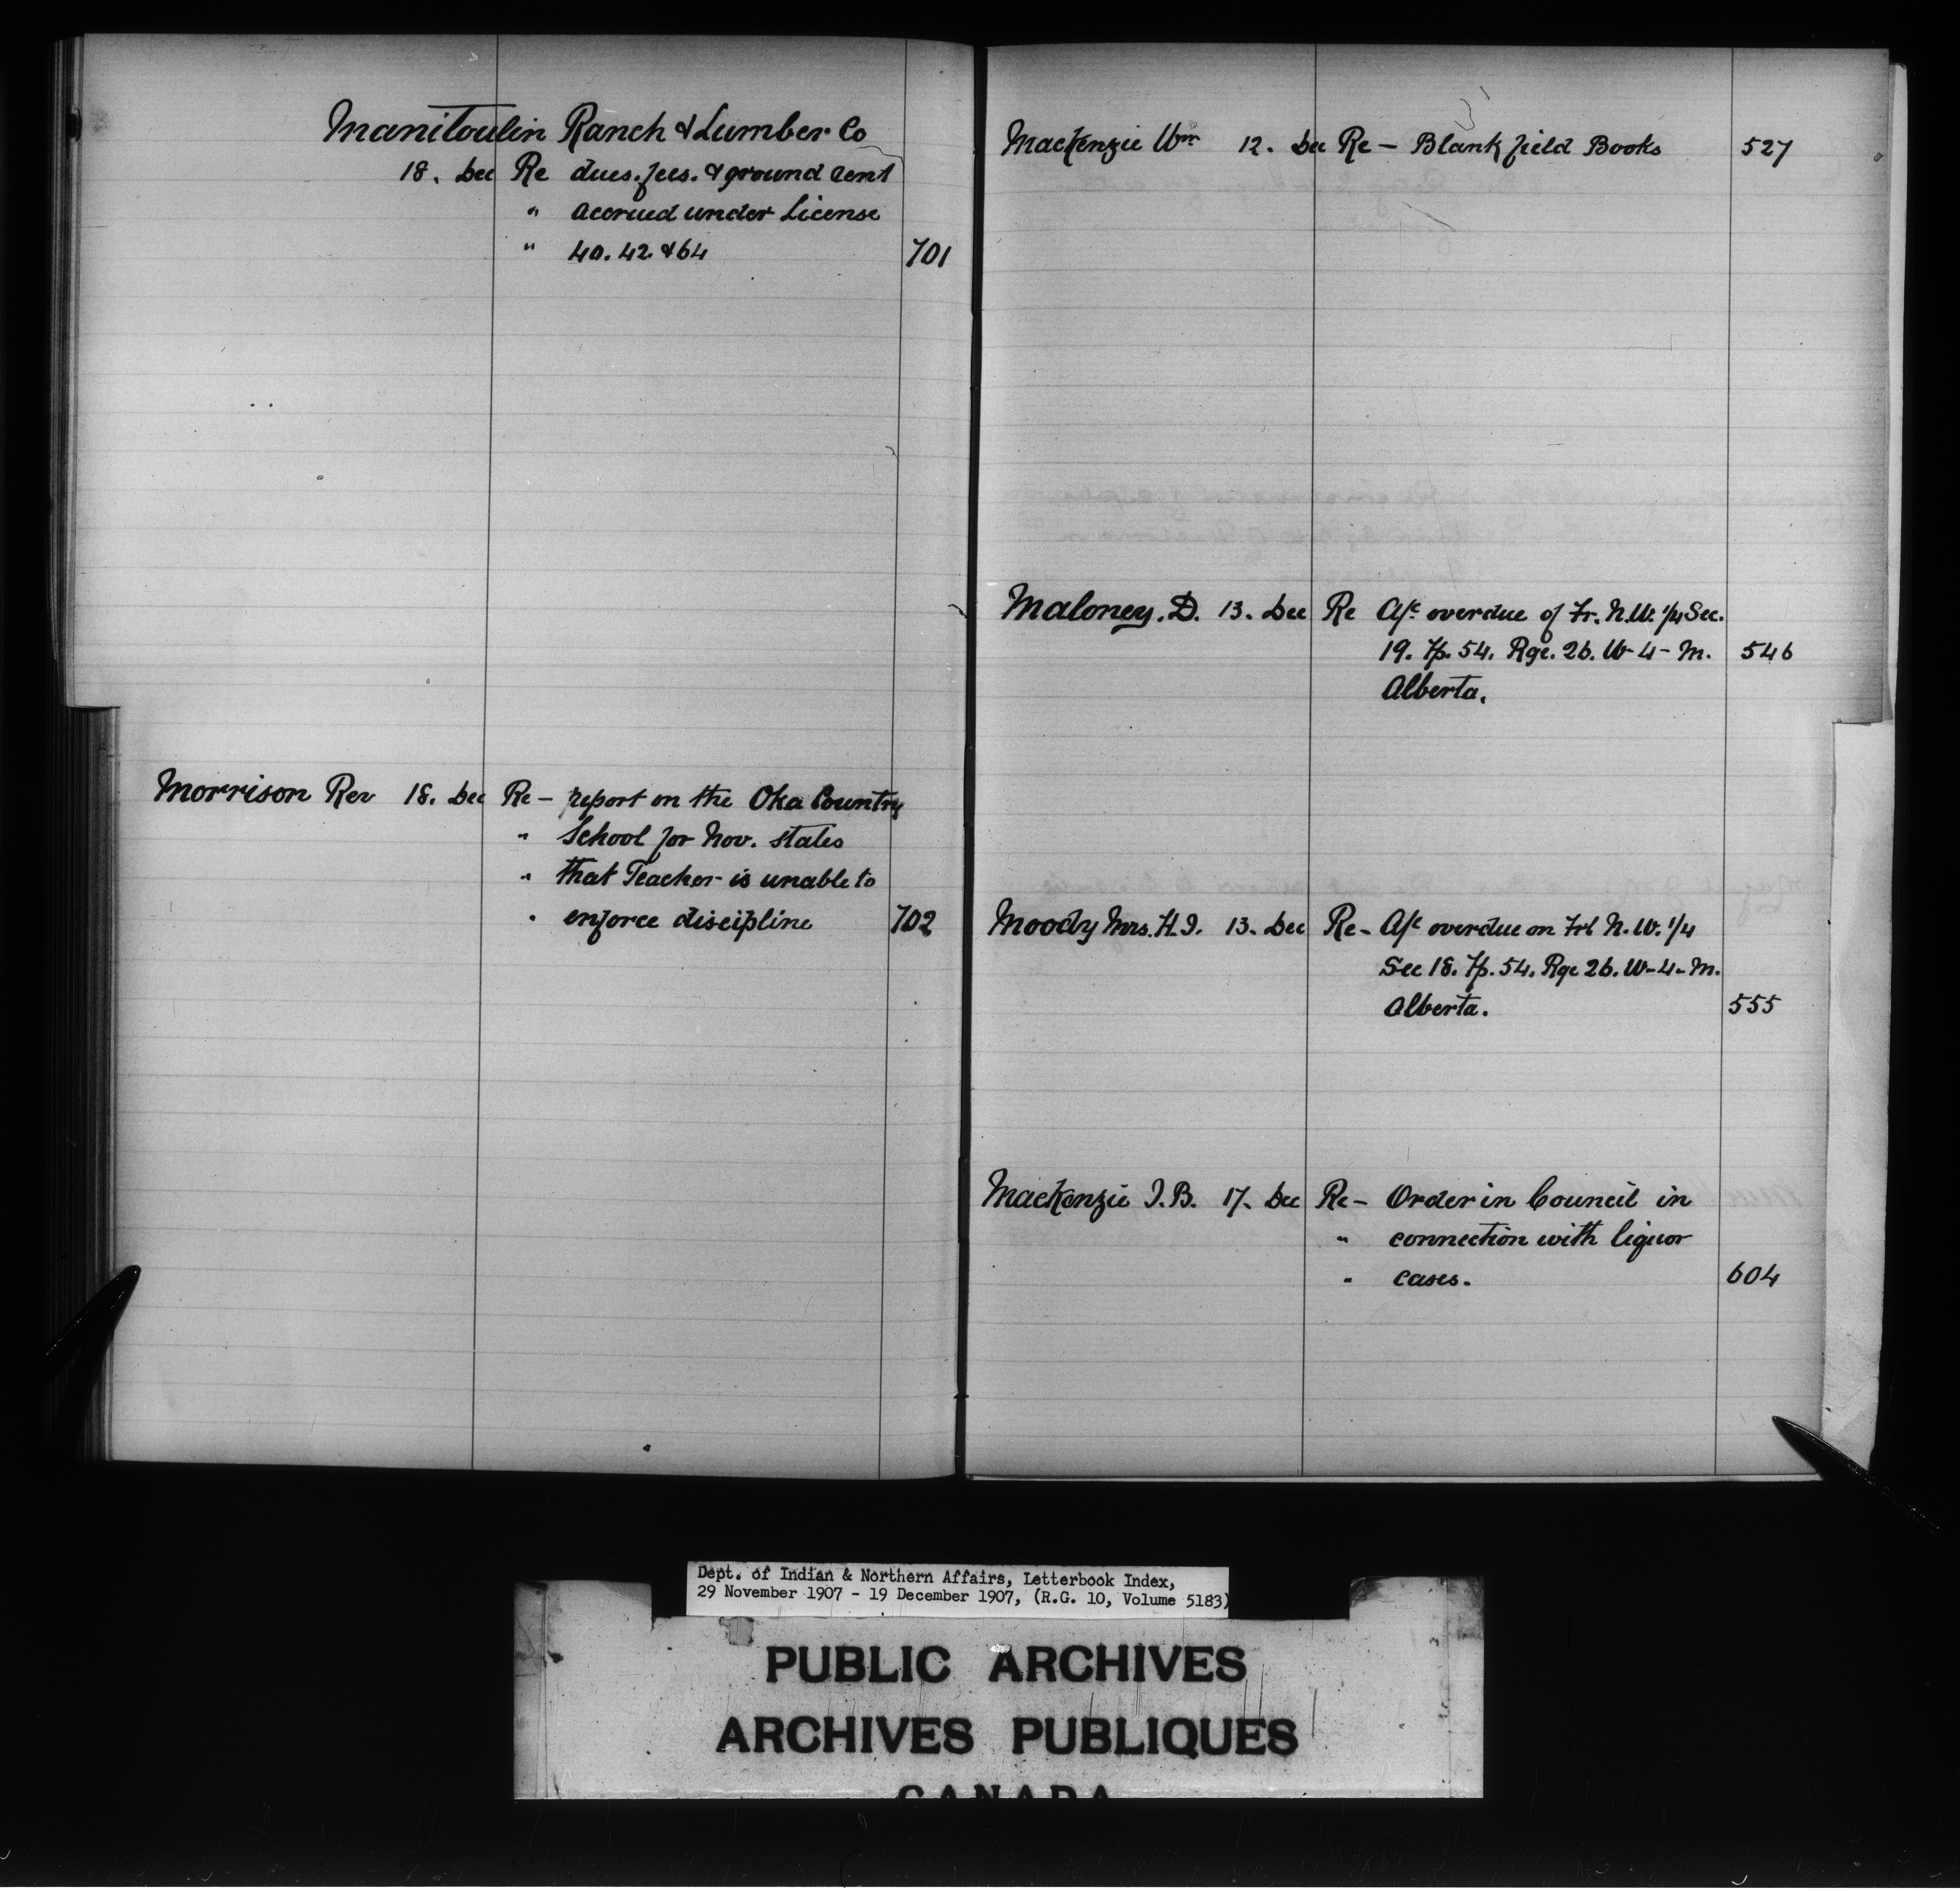 Manitoulin Ranch & Lumber Co
18. Dec Re dues. fees. & ground rent
" accrued under License
" 40. 42 & 64 701
Morrison Rev 18. Dec Re - report on the Oka Country
" School for Nov. states
" that Teacher is unable to
" enforce discipline 702
MacKenzie Wm 12. Dec Re - Blank field Books 527
Maloney. D. 13. Dec Re A/c overdue of Fr. N.W. 1/4 Sec.
19. Tp. 54. Rge. 26. W-4-M. 546
Alberta.
Moody Mrs. H.I. 13. Dec Re - A/c overdue on Frl N.W. 1/4
Sec 18. Tp. 54. Rge 26. W-4-M.
Alberta. 555
MacKenzie J.B. 17. Dec Re - Order in Council in
" connection with liquor
" cases. 604
Dept. of Indian & Northern Affairs, Letterbook Index,
29 November 1907 - 19 December 1907, (R.G. 10, Volume 5183)
PUBLIC ARCHIVES
ARCHIVES PUBLIQUES
CANADA